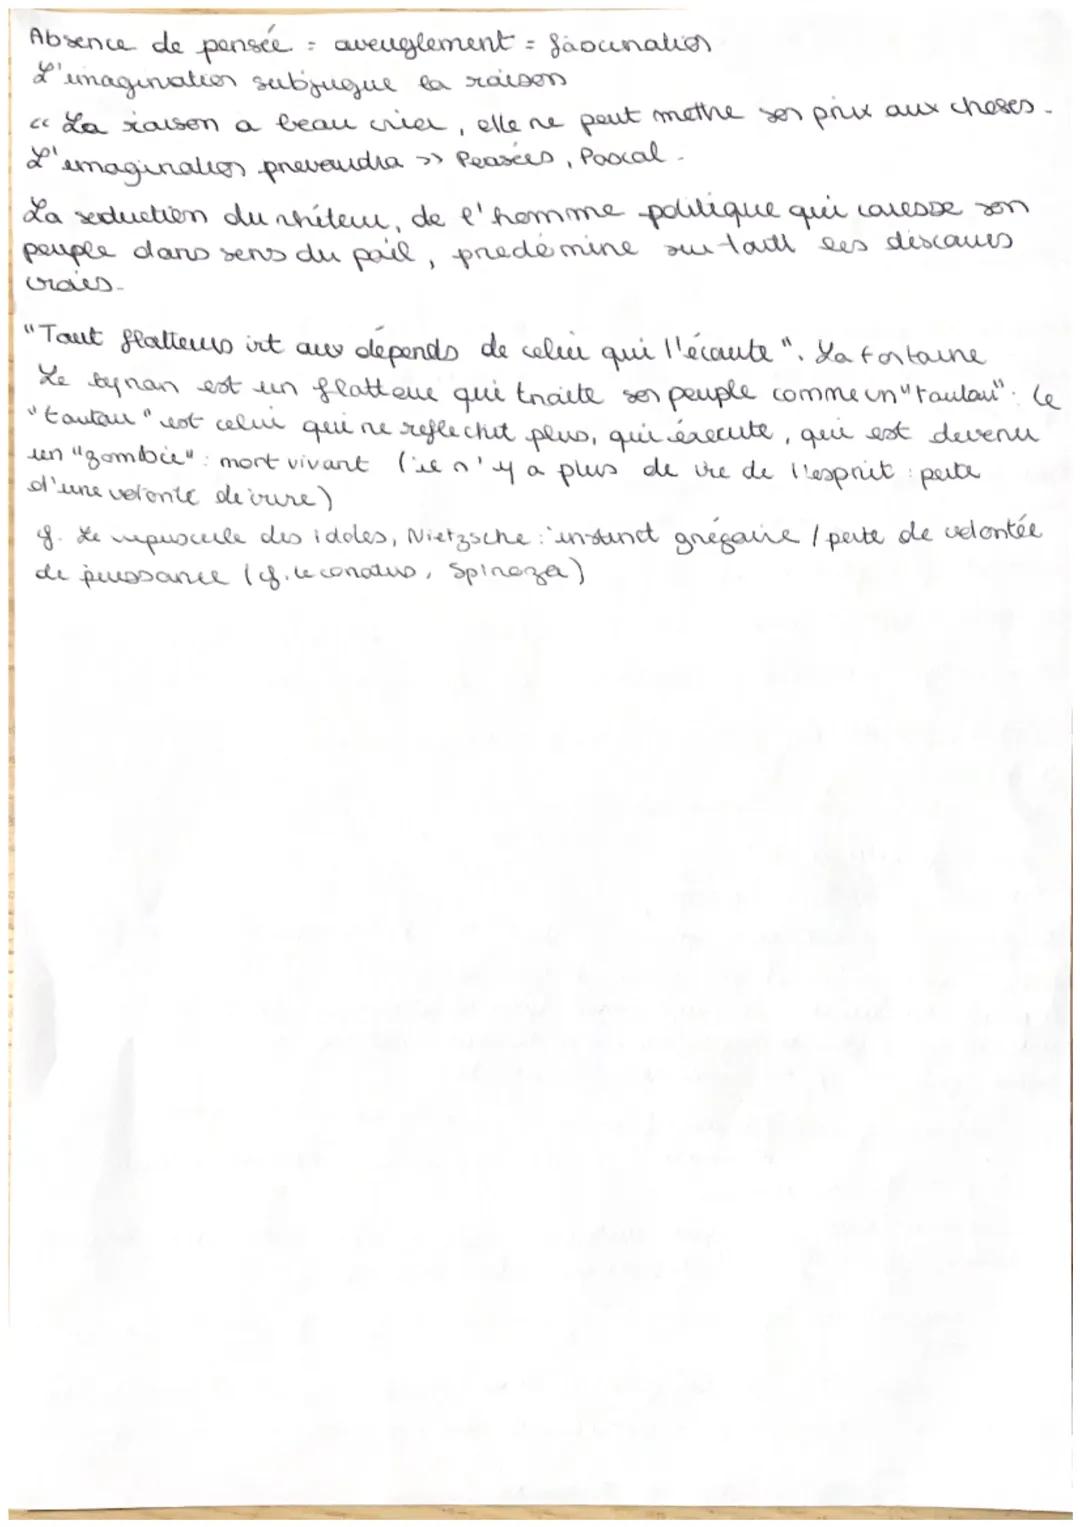 Absence de pensée = aveuglement = fascination
L'imagination subjugue la raison
« La raison a beau crier, elle ne peut mettre son prix aux choses.
L'imagination prevaudra » Pensées, Pascal.
La seduction du rhéteur, de l'homme politique qui caresse son
peuple dans sens du poil, prédomine sur tout les discours
vrais.
"Tout flatteurs vit aux dépends de celui qui l'écoute". La Fontaine
Le tyran est un flatteur qui traite son peuple comme un "toutou": le
"toutou" est celui qui ne reflechit plus, qui éxecute, qui est devenu
un "zombie": mort vivant (il n'y a plus de vie de l'esprit : perte
d'une volonté de vivre)
cf. Le crepuscule des idoles, Nietzsche : instinct grégaire / perte de volontée
de puissance (cf. le conatus, Spinoza)